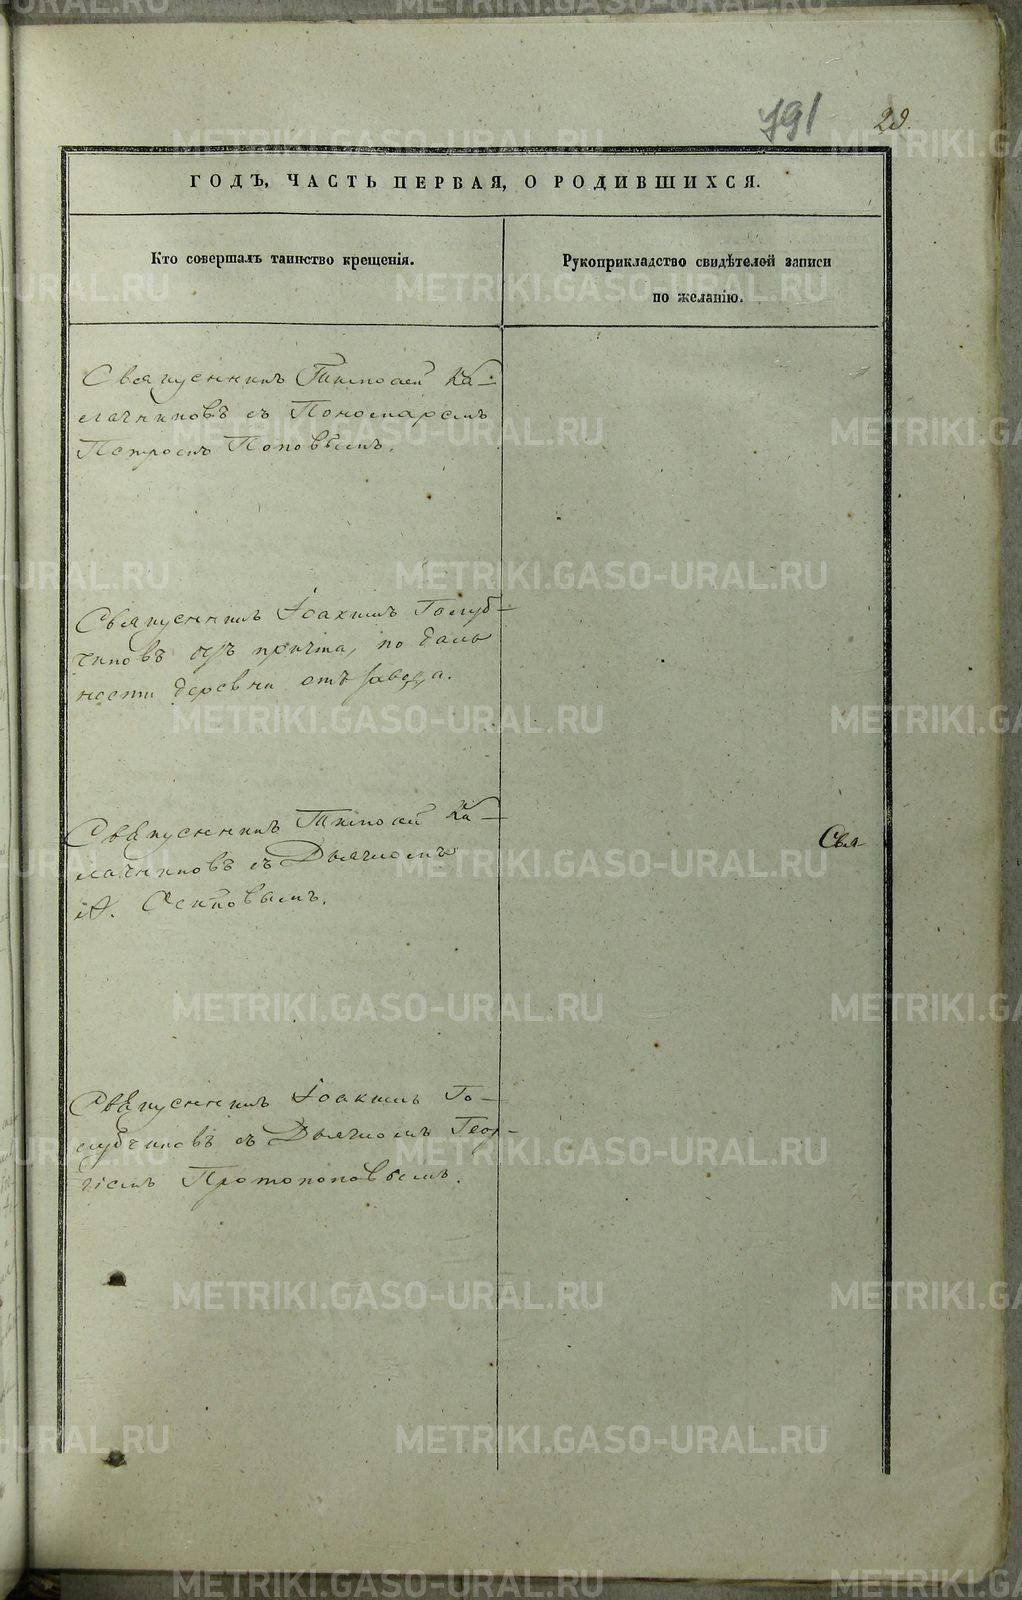 791 29.
ГОДЪ, ЧАСТЬ ПЕРВАЯ, О РОДИВШИХСЯ.
Кто совершалъ таинство крещенія.
Рукоприкладство свидѣтелей записи
по желанію.
Священникъ Тимофей Ка-
лачниковъ съ Пономаремъ
Петромъ Поповымъ.
Священникъ Іоакимъ Голуб-
чиковъ безъ причта, по даль
ности деревни отъ завода.
Священникъ Тимофей Ка-
лачниковъ съ Дьячкомъ
А. Осиповымъ.
Свя
Священникъ Іоакимъ Го-
лубчиковъ съ Дьячкомъ Геор-
гіемъ Протопоповымъ.
METRIKI.GASO-URAL.RU